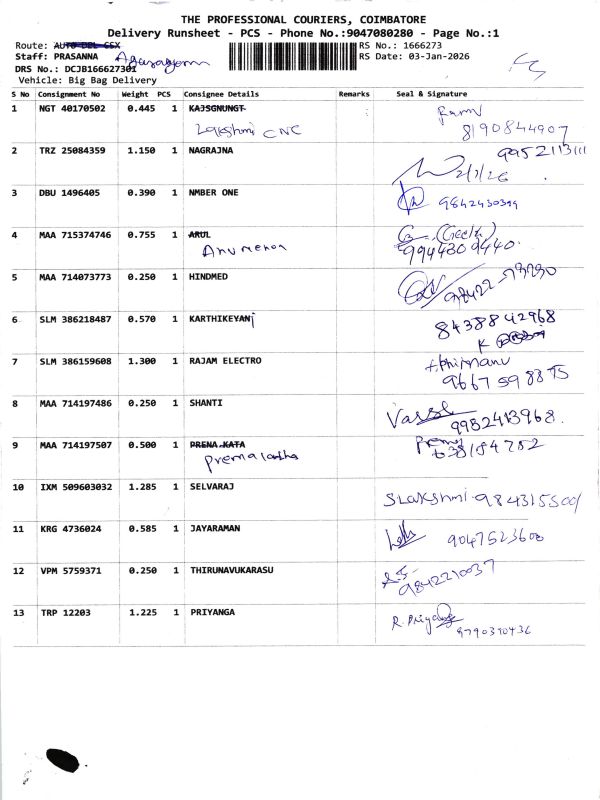 THE PROFESSIONAL COURIERS, COIMBATORE
Delivery Runsheet - PCS - Phone No.:9047080280 - Page No.:1
Route: AUTO DEL CSX
RS No.: 1666273
Staff: PRASANNA
RS Date: 03-Jan-2026
DRS No.: DCJB166627301
Vehicle: Big Bag Delivery
S No Consignment No Weight PCS Consignee Details Remarks Seal & Signature
1 NGT 40170502 0.445 1 KAJSGNUNGT
Lakshmi CNC
8190844907
2 TRZ 25084359 1.150 1 NAGRAJNA 9952113111
2/1/26
3 DBU 1496405 0.390 1 NMBER ONE 9842430399
4 MAA 715374746 0.755 1 ARUL (Geetha)
Anumenon 9944309440
5 MAA 714073773 0.250 1 HINDMED
6 SLM 386218487 0.570 1 KARTHIKEYANI 8438842968
7 SLM 386159608 1.300 1 RAJAM ELECTRO
9667598895
8 MAA 714197486 0.250 1 SHANTI
9952413968
9 MAA 714197507 0.500 1 PRENA.KATA
Premalatha
10 IXM 509603032 1.285 1 SELVARAJ
SLakshmi 9843155001
11 KRG 4736024 0.585 1 JAYARAMAN 9047523600
12 VPM 5759371 0.250 1 THIRUNAVUKARASU
9842210037
13 TRP 12203 1.225 1 PRIYANGA R. Priyanga
9790370436